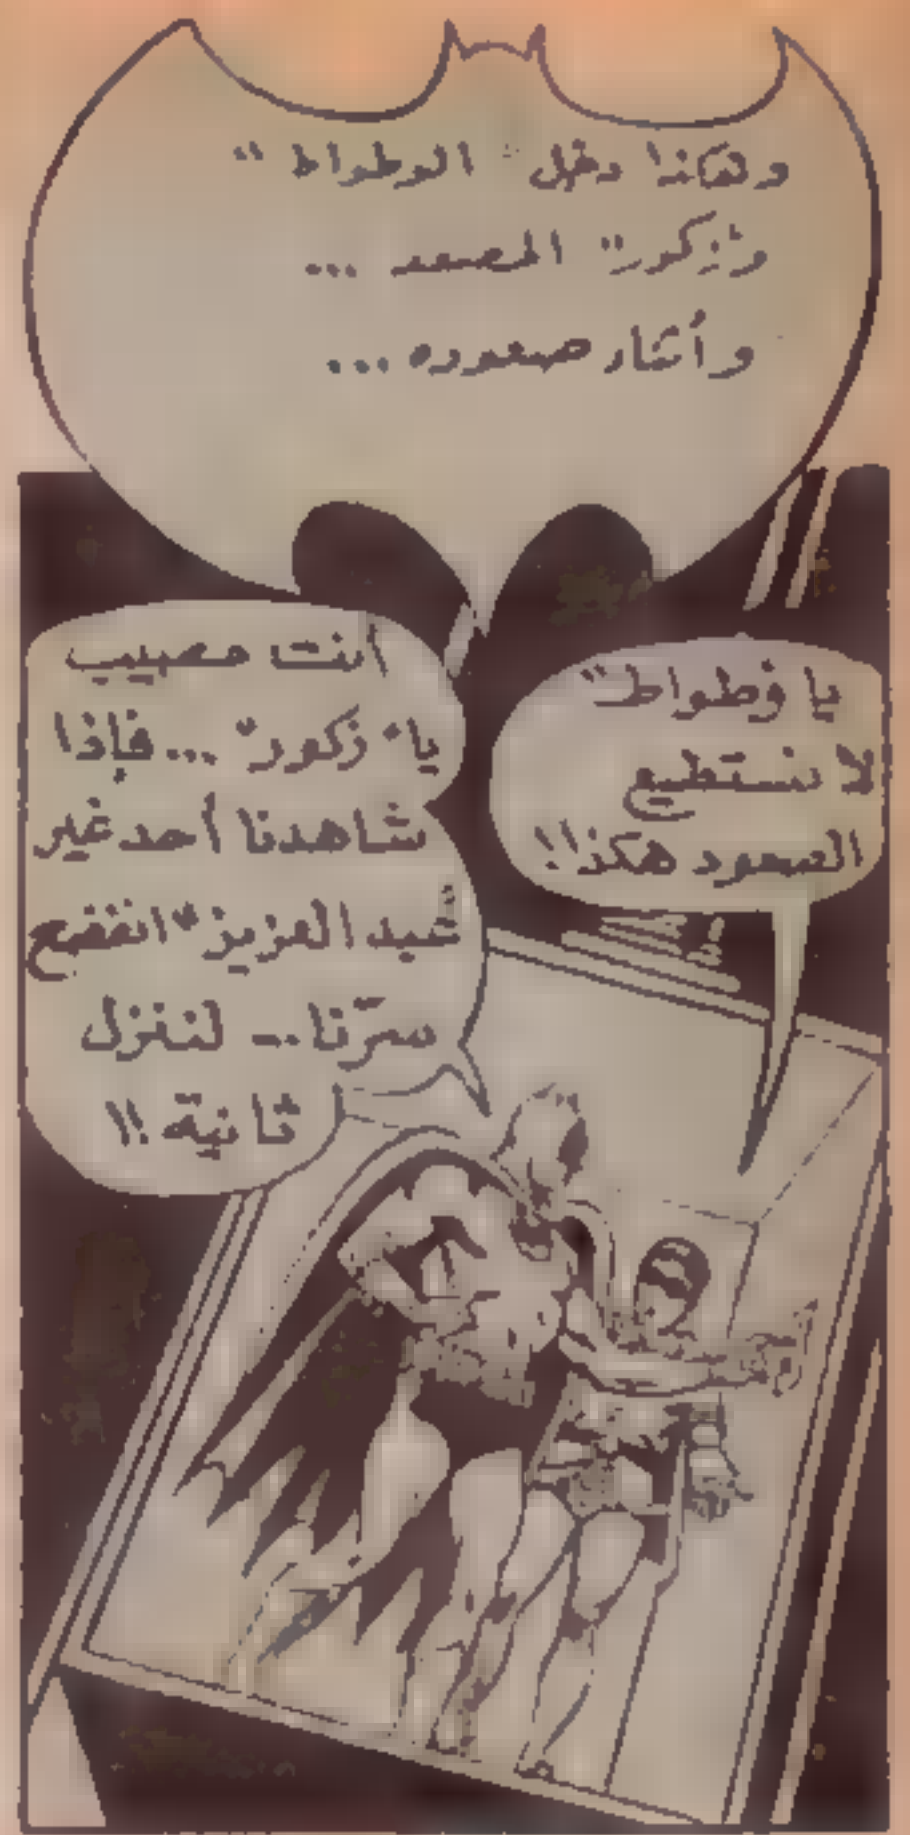 وهكذا دخل "الوطواط"
و"زكور" المصعد ...
وأثناء صعوده ...
يا وطواط"
لا نستطيع
الصعود هكذا!!
أنت مصيب
يا"زكور"... فإذا
شاهدنا أحد غير
عبد العزيز" انفضح
سرّنا .. لننزل
ثانية !!